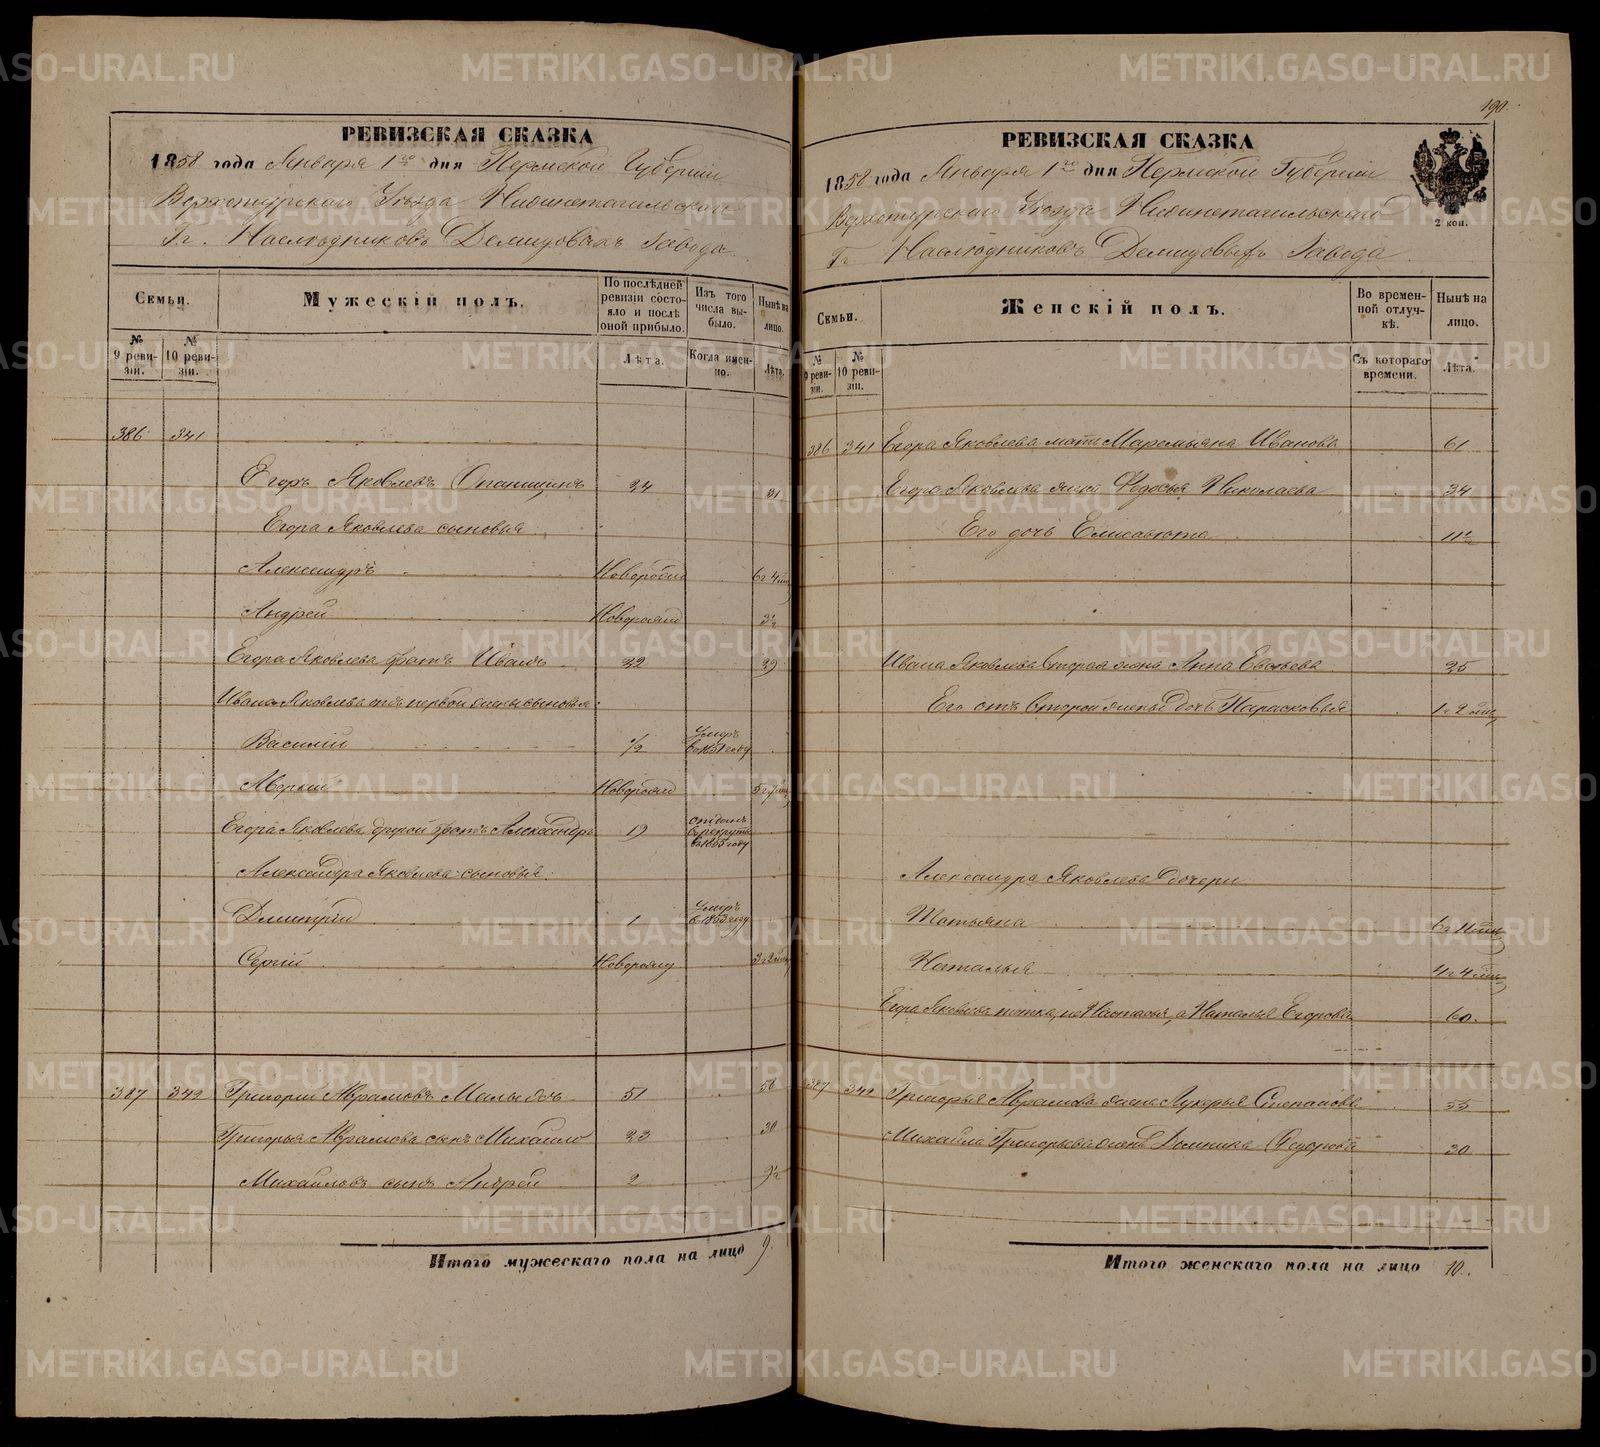 190.
РЕВИЗСКАЯ СКАЗКА
1858 года Января 1го дня Пермской Губернии
Верхотурского Уѣзда Нижнетагильскаго
Гг. Наслѣдниковъ Демидовыхъ Завода
Семьи.
Мужескій полъ.
По послѣдней ревизіи состояло и послѣ оной прибыло.
Изъ того числа выбыло.
Нынѣ на лицо.
№ 9 ревизіи.
№ 10 ревизіи.
Лѣта.
Когда именно.
Лѣта.
386 341
Егоръ Яковлевъ 24 31
Егора Яковлева сыновья
Александръ Новорожд 6 г 4 мц
Андрей Новорожд 3½
Егора Яковлева братъ Иванъ 22 29
Ивана Яковлева отъ первой жены сыновья:
Василій ½ Умеръ въ 1851 году
Аверкій Новорожд
Егора Яковлева другой братъ Александръ 19 отданъ въ рекруты въ 1855 году
Александра Яковлева сыновья:
Дмитрій 1 Умеръ в 1853 году
Сергій Новорожд 3 г 2 мц
387 342 Григорій Аврамовъ Малыгинъ 51 58
Григорья Аврамова сынъ Михайло 23 30
Михайловъ сынъ Андрей 2 9½
Итого мужескаго пола на лицо 9.
РЕВИЗСКАЯ СКАЗКА
1858 года Января 1го дня Пермской Губерніи
Верхотурского Уѣзда Нижнетагильскаго
Гг Наслѣдниковъ Демидовыхъ Завода
2 коп.
Семьи.
Женскій полъ.
Во временной отлучкѣ.
Нынѣ на лицо.
№ 9 ревизіи.
№ 10 ревизіи.
Съ котораго времени.
Лѣта.
386 341 Егора Яковлева мать Маремьяна Иванова 61
Егора Яковлева жена Федосья Николаева 34
Его дочь Елисавета 11½
Ивана Яковлева вторая жена Анна 25
Его отъ второй жены дочь Парасковья 1 г 2 мц
Александра Яковлева дочери
Татьяна 6 г 11 мц
Наталья 4 г 4 мц
Егора Яковлева тетка, не Настасья, а Наталья Егорова 60.
387 342 Григорья Аврамова жена Лукерья Степанова 55
Михайла Григорьева жена Домника Федорова 30
Итого женскаго пола на лицо 10.
METRIKI.GASO-URAL.RU